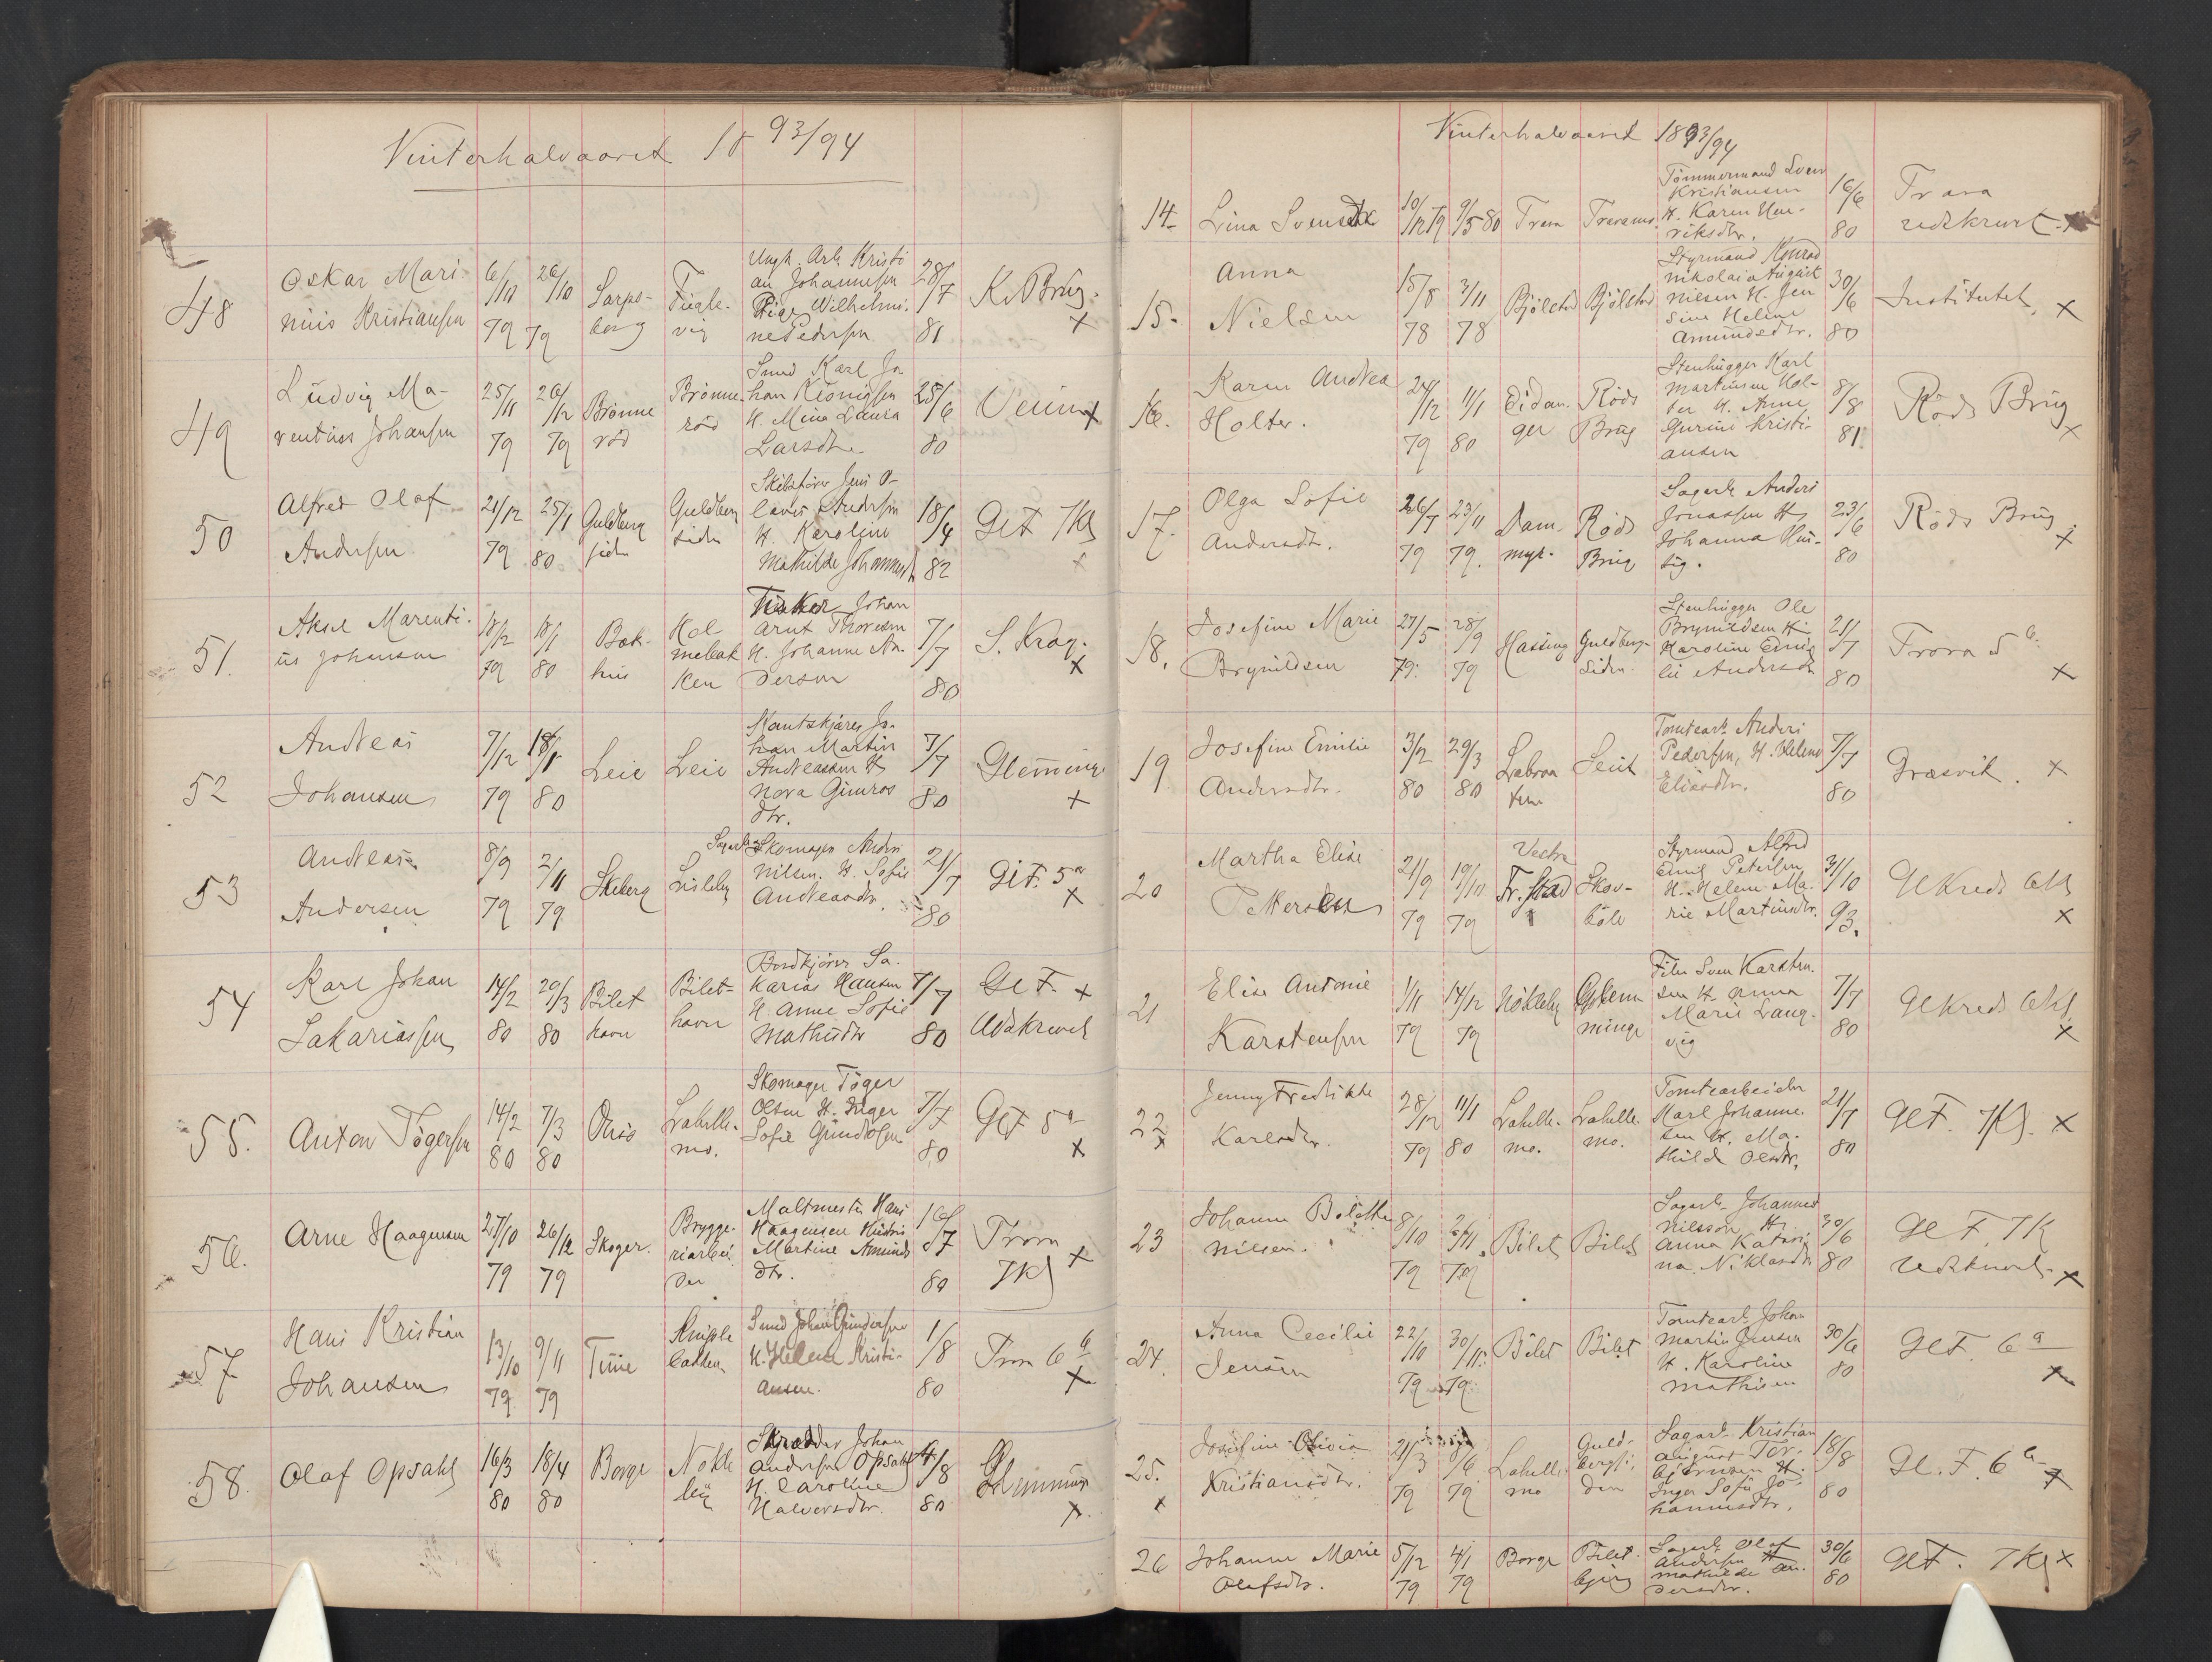 Vinterhalvaaret 1893/94
48 Oskar Mari-
nius Kristiansen 6/10 79 26/10 79 Sarps-
borg Fugle-
vig Ungk. Arb. Kristi
an Johannesen
Pige Wilhelmi-
ne Pedersen 28/7 81 K. Brug. x
49 Ludvig Ma-
rentius Johansen 25/11 79 26/12 79 Brønne
rød Brønne
rød Smed Karl Jo-
han
H. Mina Laura
Larsdtr 25/6 80 Veum x
50 Alfred Olaf
Andersen 21/12 79 25/1 80 Guldberg
siden Guldberg
siden Skibsfører Jens O-
laves Andersen
H. Karoline
Mathilde Johannesd. 18/4 82 Gl.F. 7Kl x
51. Aksel Marenti-
us Johansen 18/12 79 18/1 80 Bak-
hus Hol-
mebak
ken Fisker Johan
Arnt Thoresen
H. Johanne An-
dersen 7/7 80 S. Krog. x
52 Andreas
Johansen 7/12 79 18/1 80 Leie Leie
han Martin
Andreassen H.
Nora Gunros
dtr. 7/7 80 Glemminge x
53 Andreas
Andersen 8/9 79 2/11 79 Skeberg Lisleby Sagarb. Skomager Anders
Nilsen. H. Sofie
Andreasdtr. 21/7 80 Gl.F. 5a x
54 Karl Johan
Sakariassen 14/2 80 29/3 80 Bilet
havn Bilet-
havn Bordkjører Sa-
karias Hansen
H. Anne Sofie
Mathisdtr 7/7 80 Gl F. x
Udskrevet
55. Anton Tøgersen 14/2 80 7/3 80 Onsø Labelle-
mo. Skomager Tøger
Olsen H. Inger
Sofie Gundersen 7/7 80 Gl.F 5a x
56. Arne Haagensen 27/10 79 26/12 79 Skoger. Brygge-
riarbei
der Maltmester Hans
Haagensen Hustru
Martine Amunds
dtr. 16/7 80 Trara
7Kl x
57 Hans Kristian
Johansen 13/10 79 9/11 79 Tune Knipple
bakken Smed Johan Gundersen
H. Helene Kristi-
ansen. 1/8 80 Trara 6b x
58. Olaf Opsahl 16/3 80 18/4 80 Borge Nokle
by Skrædder Johan
Andersen Opsahl
H. Caroline
Halvorsdtr. 4/8 80 Glemminge x
Vinterhalvaaret 1893/94
14. Lina Svensdtr 10/12 79 9/5 80 Trara Traraens. Tømmermand Sven
Kristiansen
H. Karen Hen-
riksdtr. 16/6 80 Trara
udskrevet x
15. Anna
Nielsen 15/8 78 3/11 78 Bjølstad Bjølstad Styrmand Konrad
Nikolai August
Nilsen H. Jen
sine Helene
Amundsdtr. 30/6 80 Institutet x
16. Karen Andrea
Holter. 24/12 79 11/1 80 Eidan-
ger Røds
Brug Stenhugger Karl
Martinsen Hol-
ter H. Anne
Gurine Kristi-
ansen 8/8 81 Røds Brug x
17. Olga Sofie
Andersdtr. 26/7 79 23/11 79. Dam-
myr. Røds
Brug Sagarb. Anders
Jonassen H.
Johanna
23/6 80 Røds Brug x
18. Josefine Marie
Brynildsen 27/5 79. 28/9 79 Hassing Guldberg-
siden. Stenhugger Ole
Brynildsen H.
Karoline Emi
lie Andersdt 21/7 80 Trara 5b. x
19. Josefine Emilie
Andersdtr. 3/2 80 29/3 80 Labraa
ten Seut Tomtearb. Anders
Pedersen, H. Helene
Eliasdtr. 7/7 80 Græsvik. x
20 Martha Elise
Pettersen 21/9 79 19/10 79 Vestre
Fr.stad Skov-
bøle Styrmand Alfred
Emil Petersen
H. Helene Ma-
rie Martinsdtr. 31/10 93. Gl Kreds 6Kl x
21 Elise Antonie
Karstensen 1/11 79 14/12 79 Nökleby Glem
minge Filer Sven Karsten-
sen H. Anna
Marie Lang-
vig 7/7 80 Gl Kreds 6Kl x
22 x Jenny Fredrikke
Karlsdtr. 28/12 79 11/1 80 Labelle-
mo. Labelle-
mo. Tomtearbeider
Karl Johanne-
sen H. Ma-
thilde Olsdtr, 21/7 80 Gl F. 7Kl. x
23 Johanne Bolette
Nilsen. 8/10 79 2/11 79 Bilet Bilet Sagarb. Johannes
Nilsson H.
Anna Katari
na Niklasdt 30/6 80 Gl F. 7K
Udskrevet x
24. Anna Cecilie
Jensen 22/10 79 30/11 79 Bilet Bilet Tomtearb. Johan
Martin Jensen
H. Karoline
Mathisen 30/6 80 Gl F. 6a x
25. x Josefine Olivia
Kristiansdtr. 21/3 79 8/6 79 Labelle-
mo Guld-
bergsi-
den Sagarb. Kristian
August Tor-
bjørnsen H.
Inger Sofie Jo-
hannesdtr. 18/8 80 Gl. F. 6b x
26 Johanne Marie
Olafsdtr. 5/12 79 4/1 79 Borge Bilet-
bjerg Sagarb. Olaf
Andersen H.
Mathilde An-
dersdtr. 30/6 80 Gl F. 7Kl x